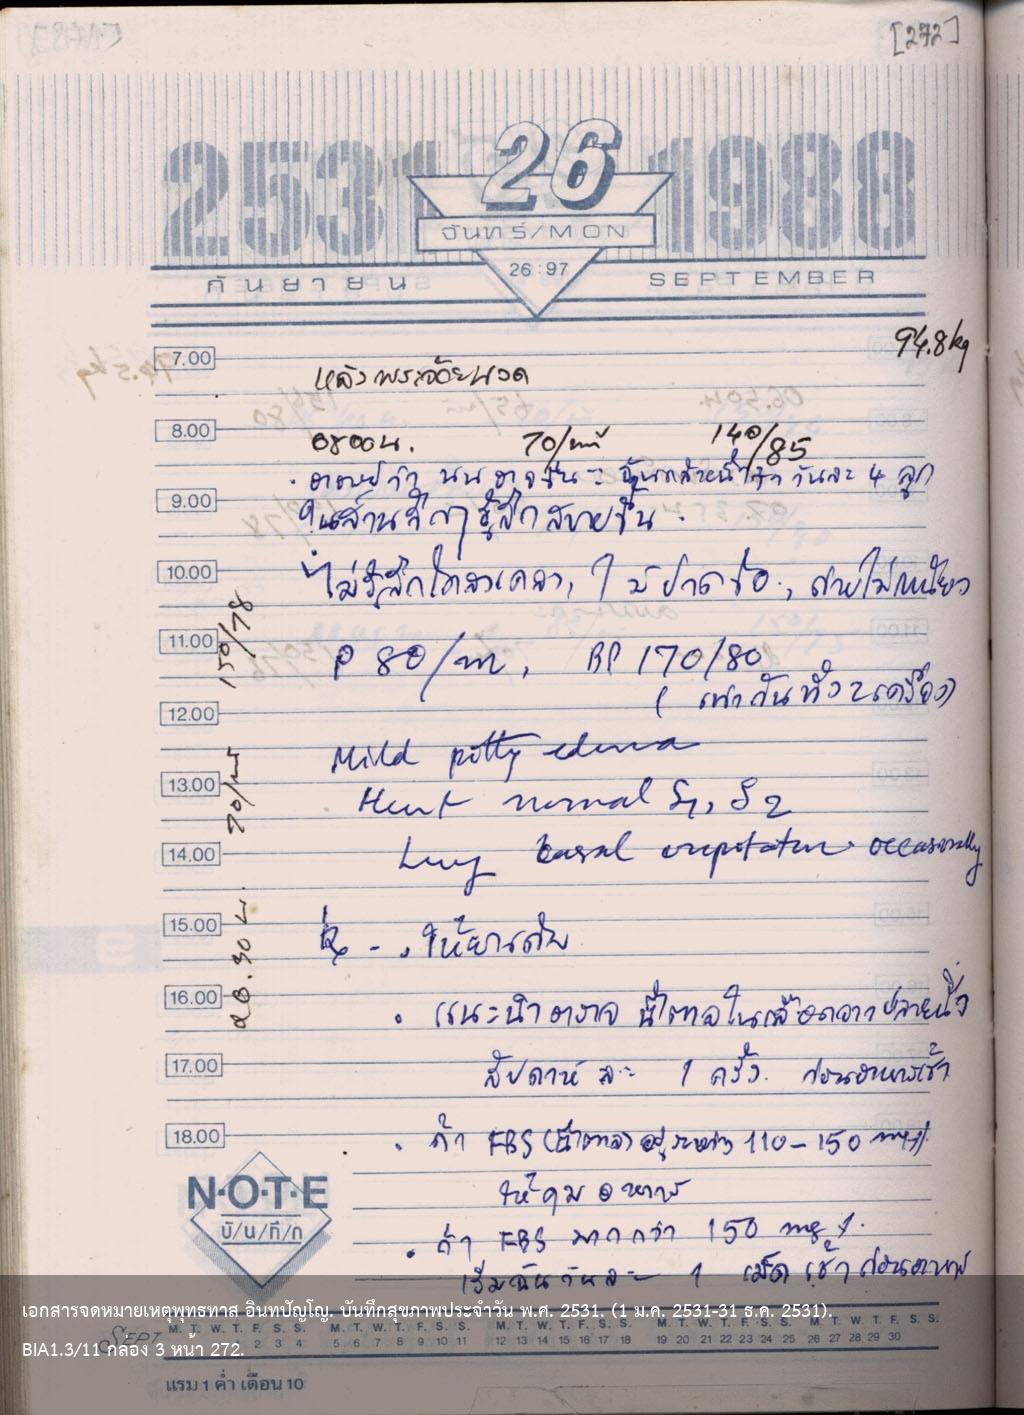 [272]
2531 26 1988
จันทร์/MON
26:97
กันยายน SEPTEMBER
94.8 kg
7.00
หลังพระจ้อยนวด
8.00
0800น. 70/นาที 140/85
วันละ 4 ลูก
9.00
รู้สึกสบายขึ้น
10.00
11.00
P 80/m, BP 170/80
(เท่ากันทั้ง 2 เครื่อง)
12.00
Mild pitting edema
13.00
Heart normal S1, S2
14.00
Lung basal crepitation occasionally
15.00
Rx - . ให้ยาเดิม
16.00
. แนะนำตรวจ น้ำตาลในเลือดจากปลายนิ้ว
17.00
สัปดาห์ละ 1 ครั้ง. ก่อนอาหารเช้า
18.00
. ถ้า FBS (น้ำตาล) อยู่ระหว่าง 110-150 mg%
ให้คุมอาหาร
. ถ้า FBS มากกว่า 150 mg%.
เริ่มฉันวันละ 1 เม็ด เช้าก่อนอาหาร
20.30 น. 70/นาที 150/78
N·O·T·E
บั/น/ทึ/ก
เอกสารจดหมายเหตุพุทธทาส อินทปัญโญ. บันทึกสุขภาพประจำวัน พ.ศ. 2531. (1 ม.ค. 2531-31 ธ.ค. 2531).
BIA1.3/11 กล่อง 3 หน้า 272.
SEPT M. T. W. T. F. S. S. M. T. W. T. F. S. S. M. T. W. T. F. S. S. M. T. W. T. F. S. S. M. T. W. T. F. S. S.
2 3 4 5 6 7 8 9 10 11 12 13 14 15 16 17 18 19 20 21 22 23 24 25 26 27 28 29 30
แรม 1 ค่ำ เดือน 10